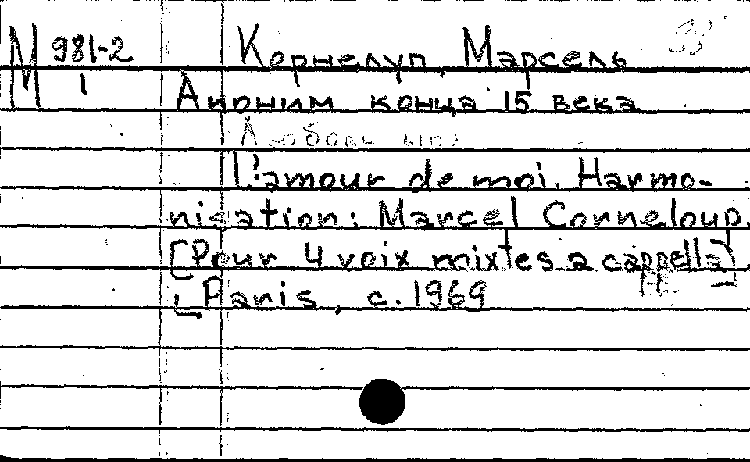 M 981-2 Корнелуп, Марсель
1 Аноним конца 15 века
L'amour de moi. Harmo-
nisation: Marcel Corneloup.
[Pour 4 voix mixtes a cappella]
Paris, c.1969